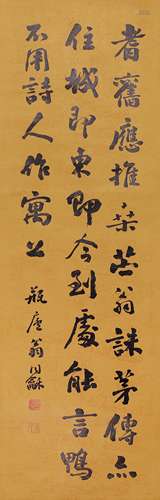 耆舊應推桑苎翁誅茅傳亦
住城即東即今到處能言鴨
不用詩人作寓公
瓶廬翁同龢